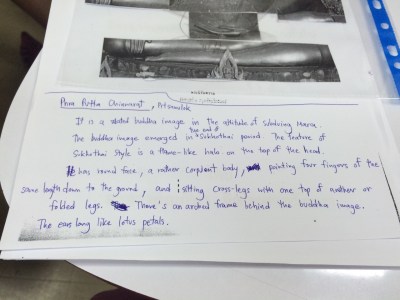 Phra Putta Chinnarat, Pitsanulok
It is a seated buddha image in the attitude of subduing Mara.
The buddha image emerged in the end of Sukhothai period. The feature of
Sukhothai style is a flame-like halo on the top of the head.
It has round face, a rather corpulent body, pointing four fingers of the
same length down to the ground, and sitting cross-legs with one top of nather or
folded legs. There's an arched frame behind the buddha image.
The ears long like lotus petals.